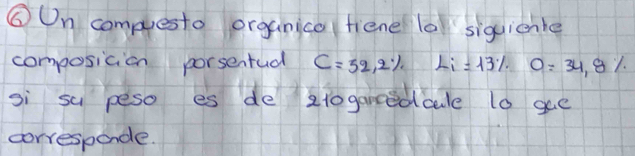 ⑥ Un compuesto organico tiene la siguiente
composición porsentud C=52,2% Li=13% O=34,8%
si su peso es de 210 lo que
corresponde.